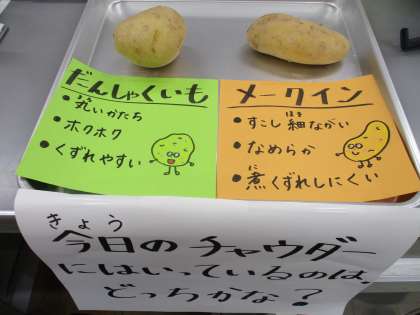 だんしゃくいも
・丸いかたち
・ホクホク
・くずれやすい
メークイン
・すこし細ながい
・なめらか
・煮くずれしにくい
今日のチャウダー
にはいっているのは、
どっちかな？